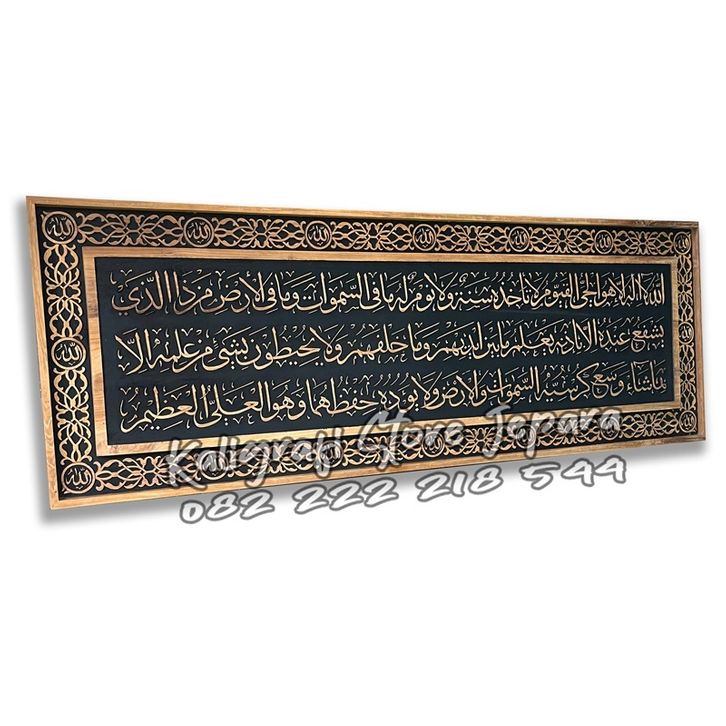 الله لا اله الا هو الحي القيوم لا تاخذه سنة ولا نوم له ما في السموات وما في الارض من ذا الذي
يشفع عنده الا باذنه يعلم ما بين ايديهم وما خلفهم ولا يحيطون بشئ من علمه الا
بما شاء وسع كرسيه السموات والارض ولا يؤوده حفظهما وهو العلي العظيم
Kaligrafi Store Jepara
082 222 218 544